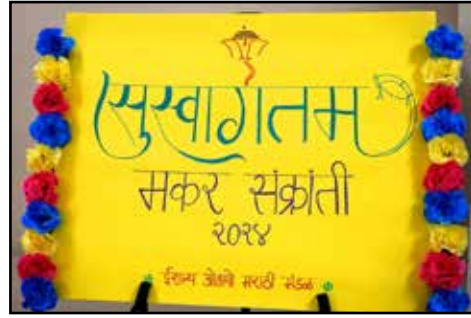 सुस्वागतम
मकर संक्रांती
२०२४
ईशान्य ओहायो मराठी मंडळ